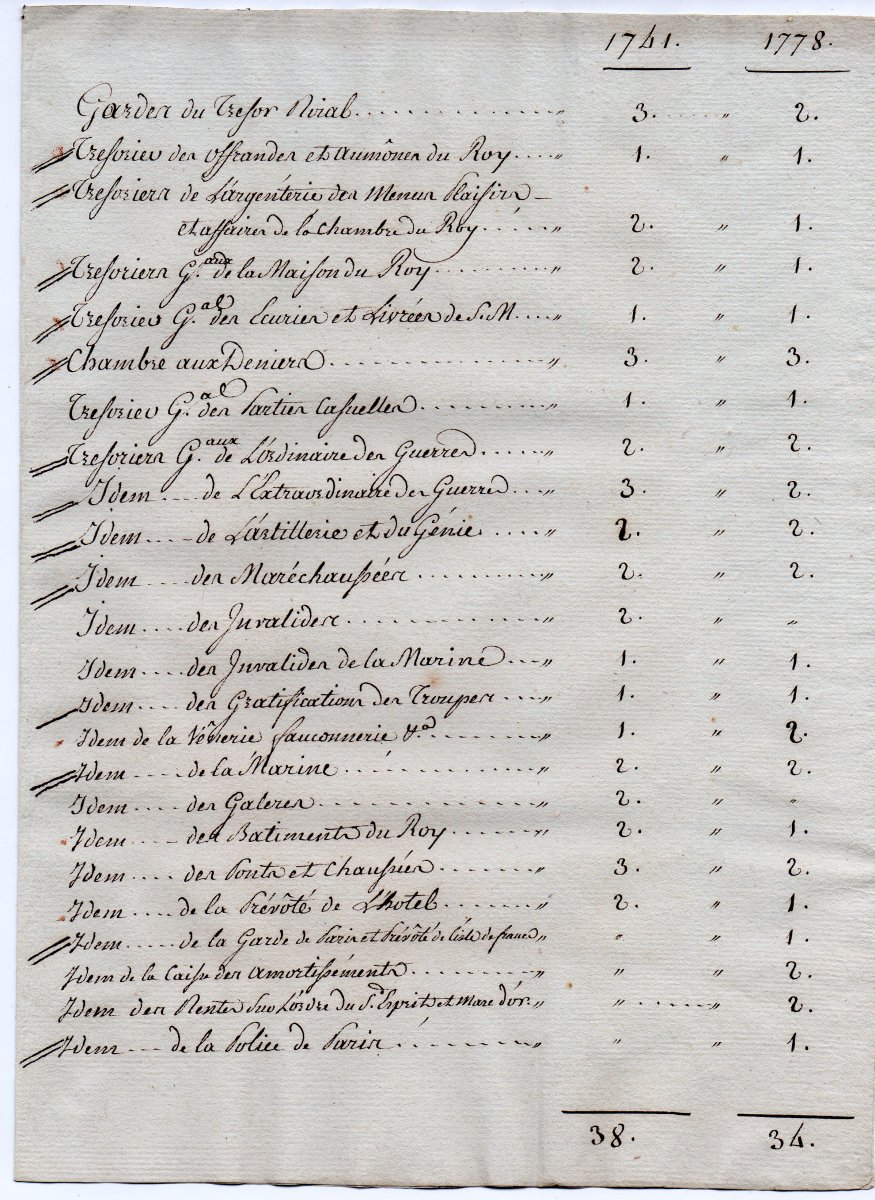 1741. 1778.
Gardes du Tresor Roial..........„ 3...... „ 2.
Tresorier des offrandes et aumônes du Roy....„ 1. „ 1.
Tresoriers de L'argenterie des Menus Plaisirs
et affaires de la chambre du Roy.....„ 2. „ 1.
Tresoriers G.aux de la Maison du Roy........„ 2. „ 1.
Tresorier G.al des Ecuries et Livrées de S.M....„ 1. „ 1.
Chambre aux Deniers..............„ 3. „ 3.
Tresorier G.al des Parties Casuelles.........„ 1. „ 1.
Tresoriers G.aux de L'ordinaire des Guerres.....„ 2. „ 2.
Idem....de L'Extraordinaire des Guerres...„ 3. „ 2.
Idem....de L'artillerie et du Génie....„ 2. „ 2.
Idem....des Maréchaussées..........„ 2. „ 2.
Idem....des Invalides..............„ 2. „ „
Idem....des Invalides de la Marine...„ 1. „ 1.
Idem....des Gratifications des Troupes...„ 1. „ 1.
Idem de la Vênerie fauconnerie &.a.........„ 1. „ 2.
Idem....de la Marine.............„ 2. „ 2.
Idem....des Galeres..............„ 2. „ „
Idem....des Batiments du Roy......„ 2. „ 1.
Idem....des Ponts et Chaussées.......„ 3. „ 2.
Idem....de la Prévôté de L'hotel.......„ 2. „ 1.
Idem.....de la Garde de Paris et Prévôté de l'isle de france„ „ „ 1.
Idem de la Caisse des amortissements.........„ „ „ 2.
Idem des Rentes Sur L'ordre du S.t Esprit et Marc d'or.„ „......„ 2.
Idem....de la Police de Paris..........„ „ „ 1.
38. 34.